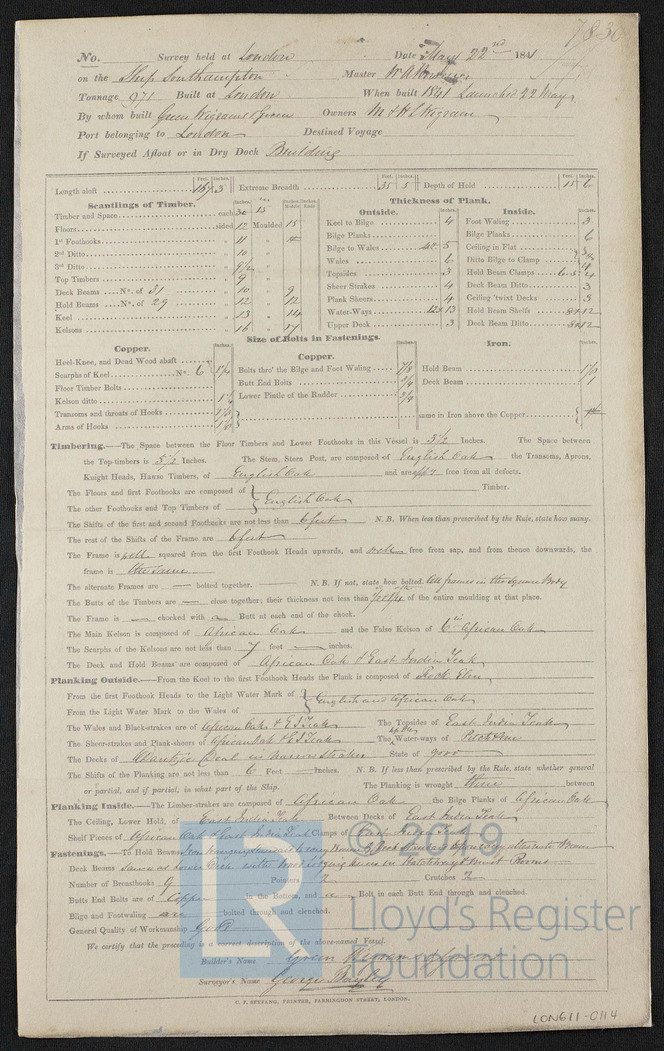 7830
No. Survey held at London Date May 22nd 1841
on the Ship Southampton Master
Tonnage 971 Built at London When built 1841 Launched 22 May
By whom built Green Wigrams & Green Owners M & H L Wigram
Port belonging to London Destined Voyage
If Surveyed Afloat or in Dry Dock Building
Feet. Inches. Feet. Inches. Feet. Inches.
Length aloft 167 3 Extreme Breadth 35 5 Depth of Hold 15 6
Scantlings of Timber. Thickness of Plank.
Outside. Inside.
Timber and Space each 30 15 Keel to Bilge 4 Foot Waling 3
Floors sided 12 Moulded 15 Bilge Planks Bilge Planks 6
1st Foothooks " 11 " Bilge to Wales 5 Ceiling in Flat
2nd Ditto " 10 " Wales 6 Ditto Bilge to Clamp
3rd Ditto " 9½ " Topsides 3 Hold Beam Clamps
Top Timbers " 9 " Sheer Strakes 4 Deck Beam Ditto 3
Deck Beams No. of 31 " 10 " 9 Plank Sheers 4 Ceiling 'twixt Decks 3
Hold Beams No. of 29 " 12 " 12 Water-Ways 12 13 Hold Beam Shelfs 12
Keel " 13 " 14 Upper Deck 3 Deck Beam Ditto 12
Kelsons " 16 " 17
Size of Bolts in Fastenings.
Copper. Copper. Iron.
Heel-Knee, and Dead Wood abaft
Scarphs of Keel No. 6 Bolts thro' the Bilge and Foot Waling 7/8 Hold Beam
Floor Timber Bolts Butt End Bolts Deck Beam
Kelson ditto Lower Pintle of the Rudder
Transoms and throats of Hooks same in Iron above the Copper
Arms of Hooks
Timbering.—The Space between the Floor Timbers and Lower Foothooks in this Vessel is 5½ Inches. The Space between
the Top-timbers is 5½ Inches. The Stem, Stern Post, are composed of English Oak the Transoms, Aprons,
Knight Heads, Hawse Timbers, of English Oak and are free from all defects.
The Floors and first Foothooks are composed of Timber.
English Oak
The other Foothooks and Top Timbers of
The Shifts of the first and second Foothooks are not less than 6 feet N. B. When less than prescribed by the Rule, state how many.
The rest of the Shifts of the Frame are 6 feet
The Frame is well squared from the first Foothook Heads upwards, and well free from sap, and from thence downwards, the
frame is the same
The alternate Frames are — bolted together. N. B. If not, state how bolted. All frames in the Square Body
The Butts of the Timbers are — close together; their thickness not less than of the entire moulding at that place.
The Frame is — chocked with a Butt at each end of the chock.
The Main Kelson is composed of African Oak and the False Kelson of African Oak
The Scarphs of the Kelsons are not less than 7 feet — inches.
The Deck and Hold Beams are composed of African Oak & East India Teak
Planking Outside.—From the Keel to the first Foothook Heads the Plank is composed of Rock Elm
From the first Foothook Heads to the Light Water Mark of
English and African Oak
From the Light Water Mark to the Wales of
The Wales and Black-strakes are of African Oak & E I Teak The Topsides of East India Teak
The Sheer-strakes and Plank-sheers of African Oak & E I Teak The upper Water-ways of Pitch Pine
The Decks of Dantzic Deal in narrow strakes State of good
The Shifts of the Planking are not less than 6 Feet — Inches. N. B. If less than prescribed by the Rule, state whether general
or partial, and if partial, in what part of the Ship. The Planking is wrought three between
Planking Inside.—The Limber-strakes are composed of African Oak the Bilge Planks of African Oak
The Ceiling, Lower Hold, of East India Teak Between Decks of East India Teak
Shelf Pieces of African Oak & East India Teak Clamps of East India Teak
Fastenings.—To Hold Beams Iron hanging knees to every Beam
Deck Beams Same as Lower Deck with
Number of Breasthooks 9 Pointers 2 Crutches 2
Butts End Bolts are of Copper in the Bottom, and a Bolt in each Butt End through and clenched.
Bilge and Footwaling are bolted through and clenched.
General Quality of Workmanship Good
We certify that the preceding is a correct description of the above-named Vessel.
Builder's Name Green Wigrams & Green
Surveyor's Name George Bayley
C. F. SEYFANG, PRINTER, FARRINGDON STREET, LONDON.
LON611-0114
© 2019
LR
Lloyd's Register
Foundation